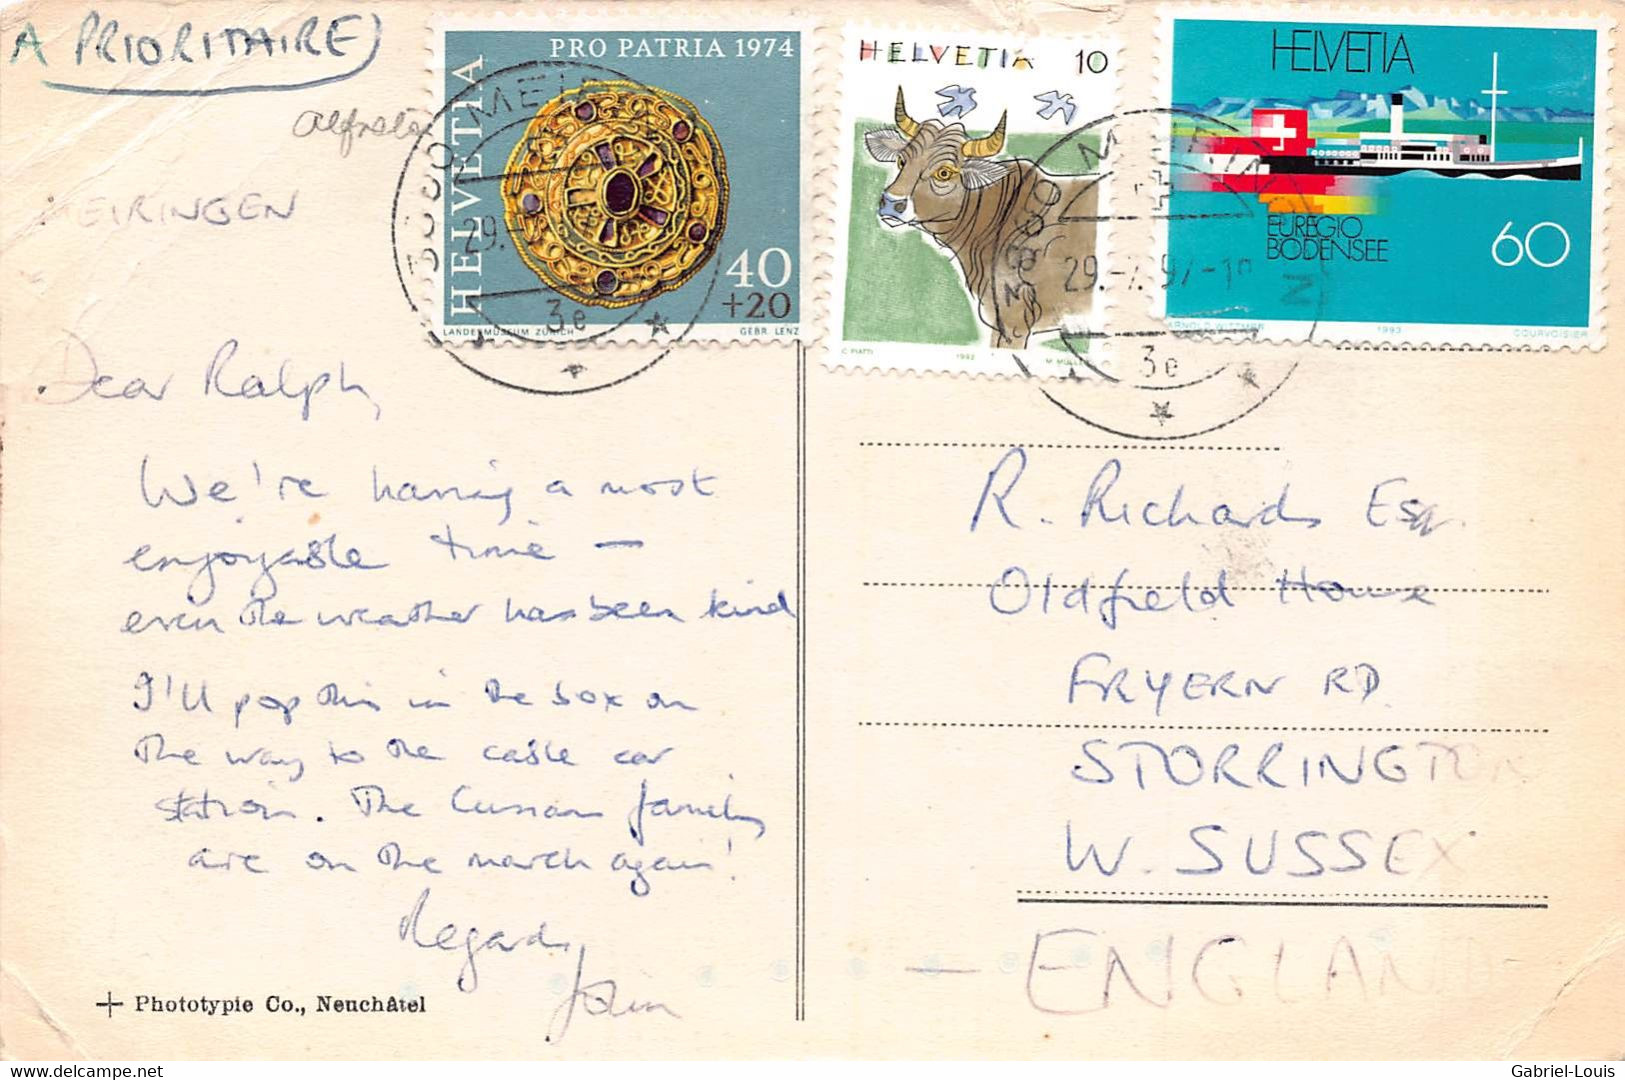 A PRIORITAIRE
MEIRINGEN
PRO PATRIA 1974
HELVETIA
40
+20
LANDESMUSEUM ZÜRICH
GEBR. LENZ
HELVETIA 10
C. PIATTI 1992
HELVETIA
EUREGIO
BODENSEE
60
ARNOLD WITTMER 1993 COURVOISIER
3860
29.
3e
3860
29.-7.97-1
3e
Dear Ralph,
We're having a most
enjoyable time —
even the weather has been kind
I'll pop this in the box on
the way to the cable car
station. The family
are on the march again!
Regards,
John
+ Phototypie Co., Neuchâtel
R. Richards Esq.
Oldfield House
FRYERN RD.
STORRINGTON
W. SUSSEX
— ENGLAND
delcampe.net
Gabriel-Louis